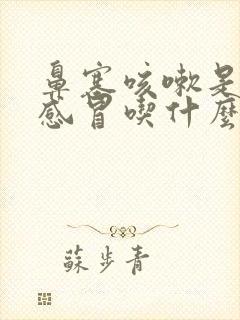 鼻塞咳嗽是
感冒喫什麼
蘇步青